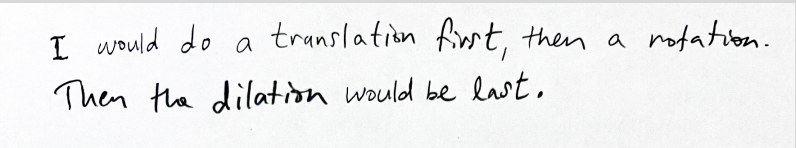 I would do a translation first, then a rotation.
Then the dilation would be last.